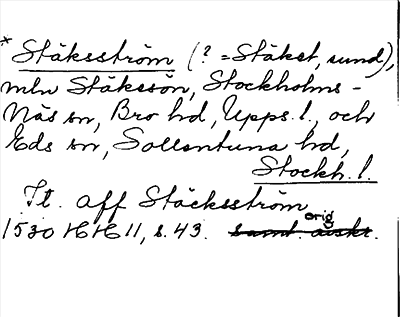 * Stäksström (? = Stäket, sund),
mln Stäksön, Stockholms-
Näs sn, Bro hd, Upps. l., och
Eds sn, Sollentuna hd,
Stockh. l.
It. aff Stäcksström
orig
1530 HH 11, s. 43. saml. avskr.